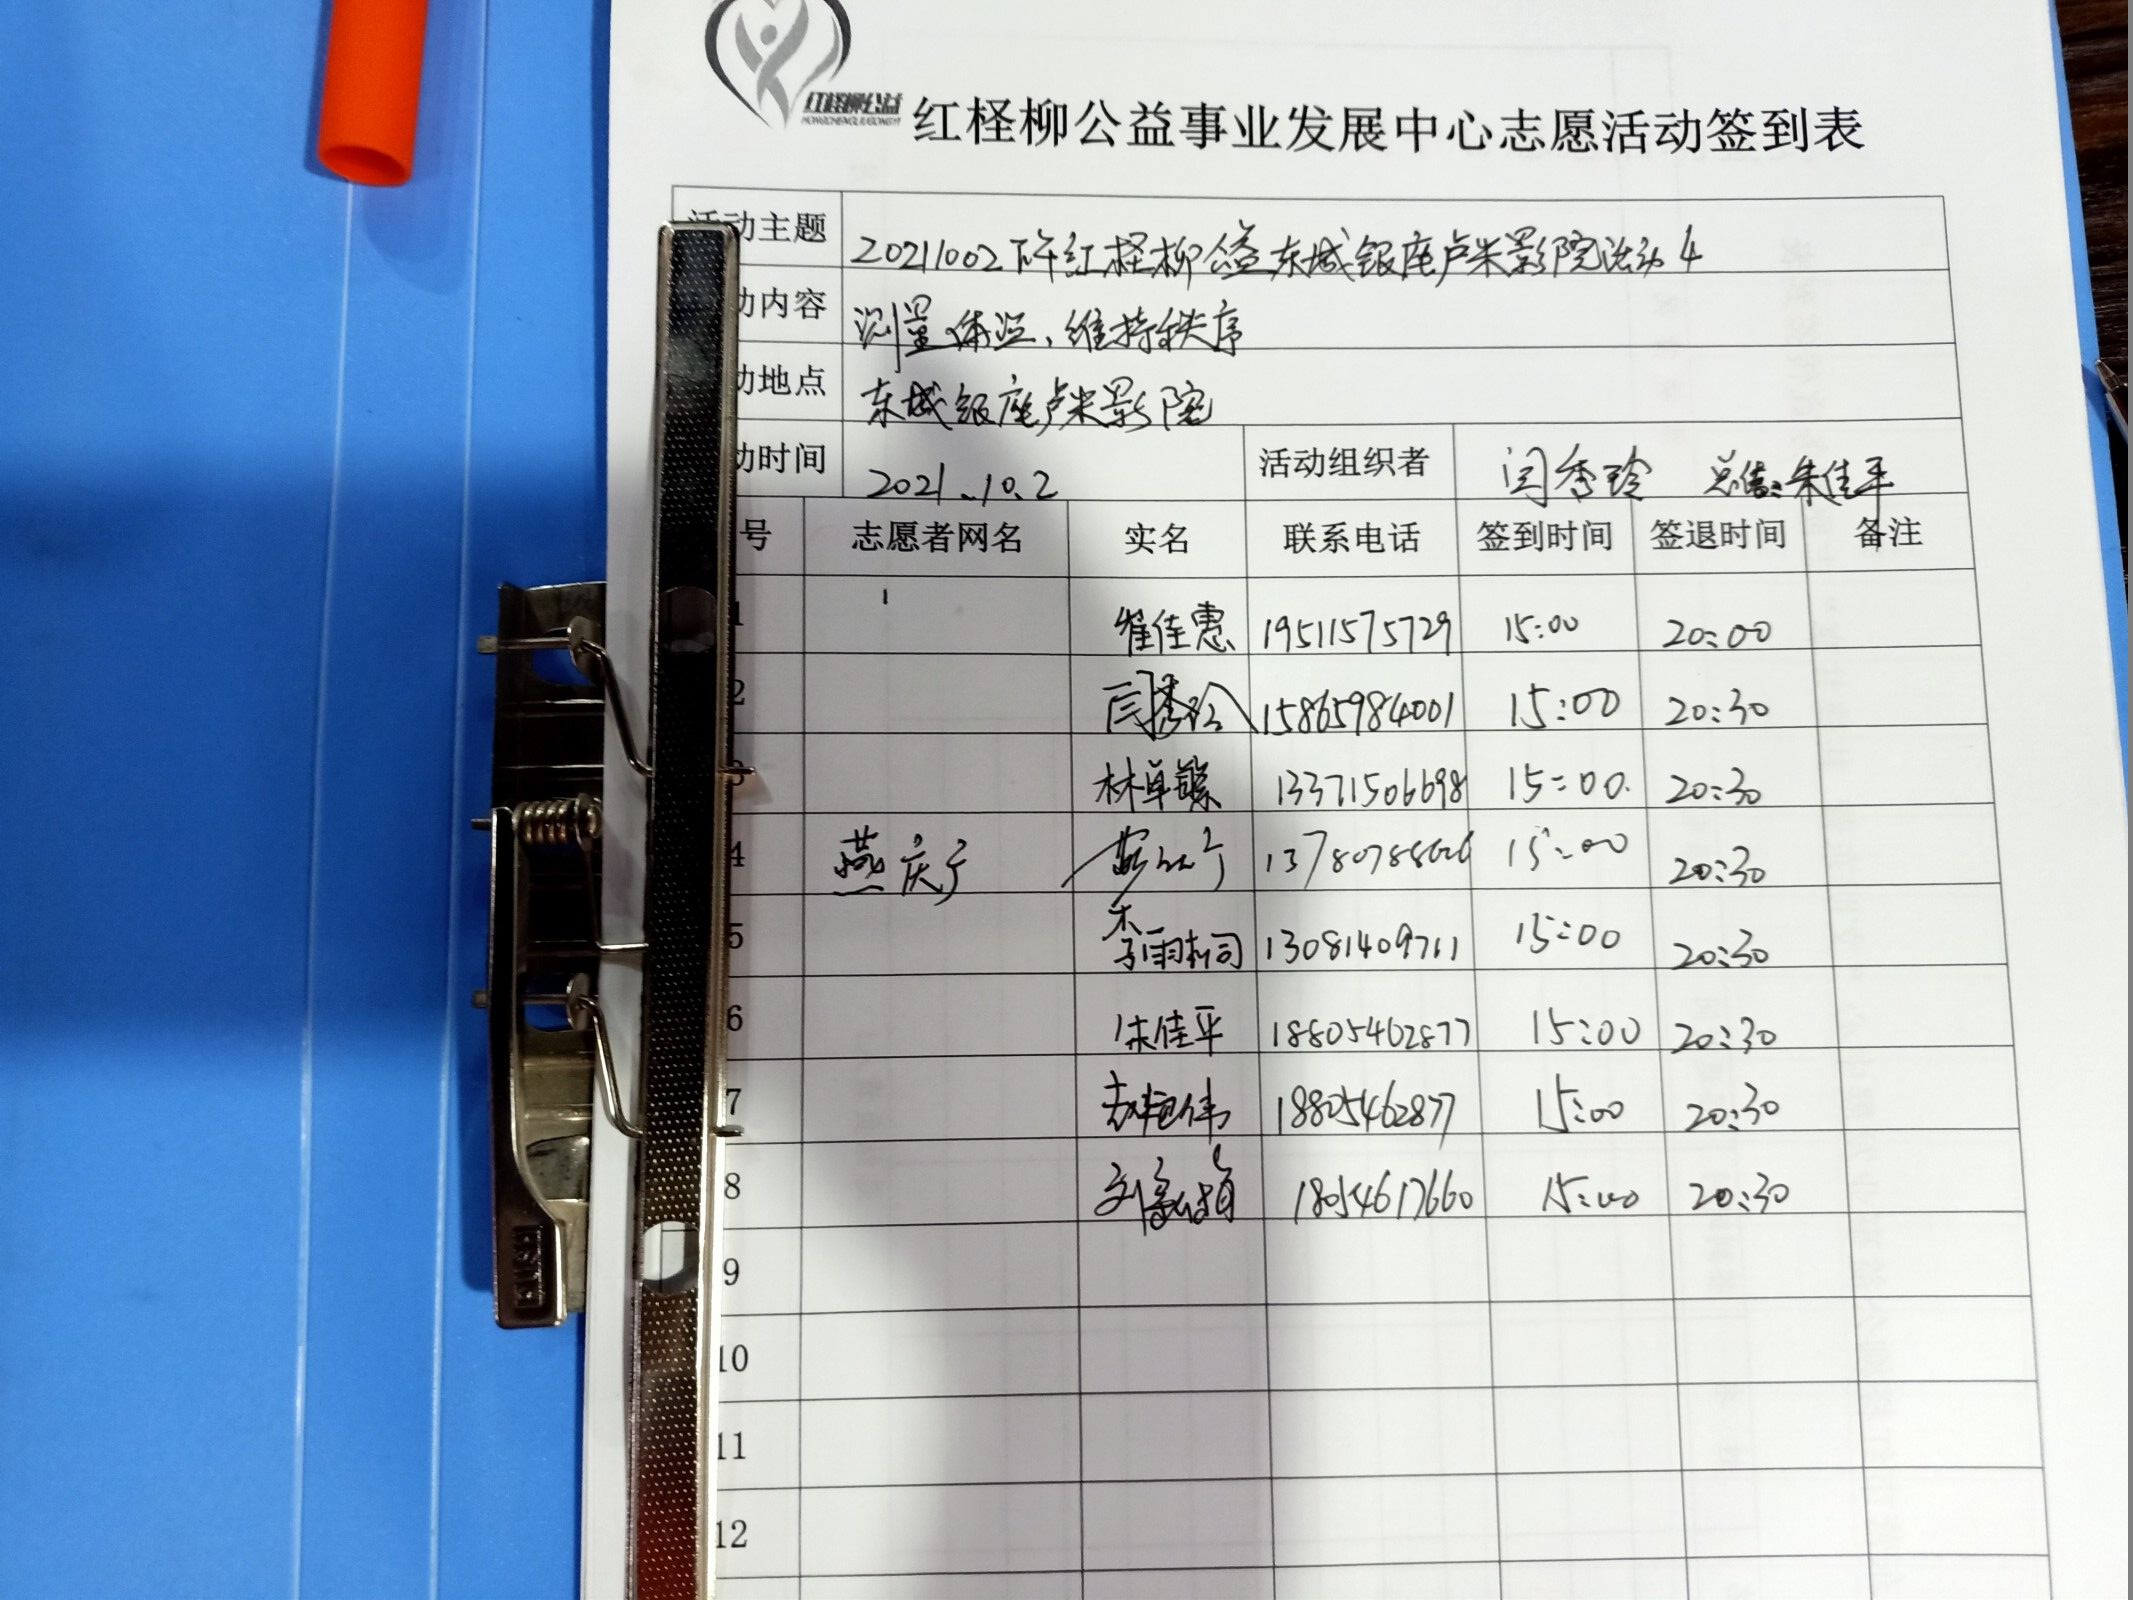 红柽柳公益
HONGCHENGLIUGONGYI
红柽柳公益事业发展中心志愿活动签到表
活动主题 20211002下午红柽柳公益东城银座卢米影院活动4
动内容 测量体温、维持秩序
动地点 东城银座卢米影院
动时间 2021.10.2 活动组织者 闫秀玲 总结:朱佳平
号 志愿者网名 实名 联系电话 签到时间 签退时间 备注
1 崔佳惠 19511575729 15:00 20:00
2 闫秀玲 15865984001 15:00 20:30
3 林卓 13371506698 15:00 20:30
4 燕庆宁 15:00 20:30
5 李雨桐 13081409711 15:00 20:30
6 朱佳平 18805462877 15:00 20:30
7 赵艳伟 18805462877 15:00 20:30
8 18054617660 15:00 20:30
9
10
11
12
KUSH